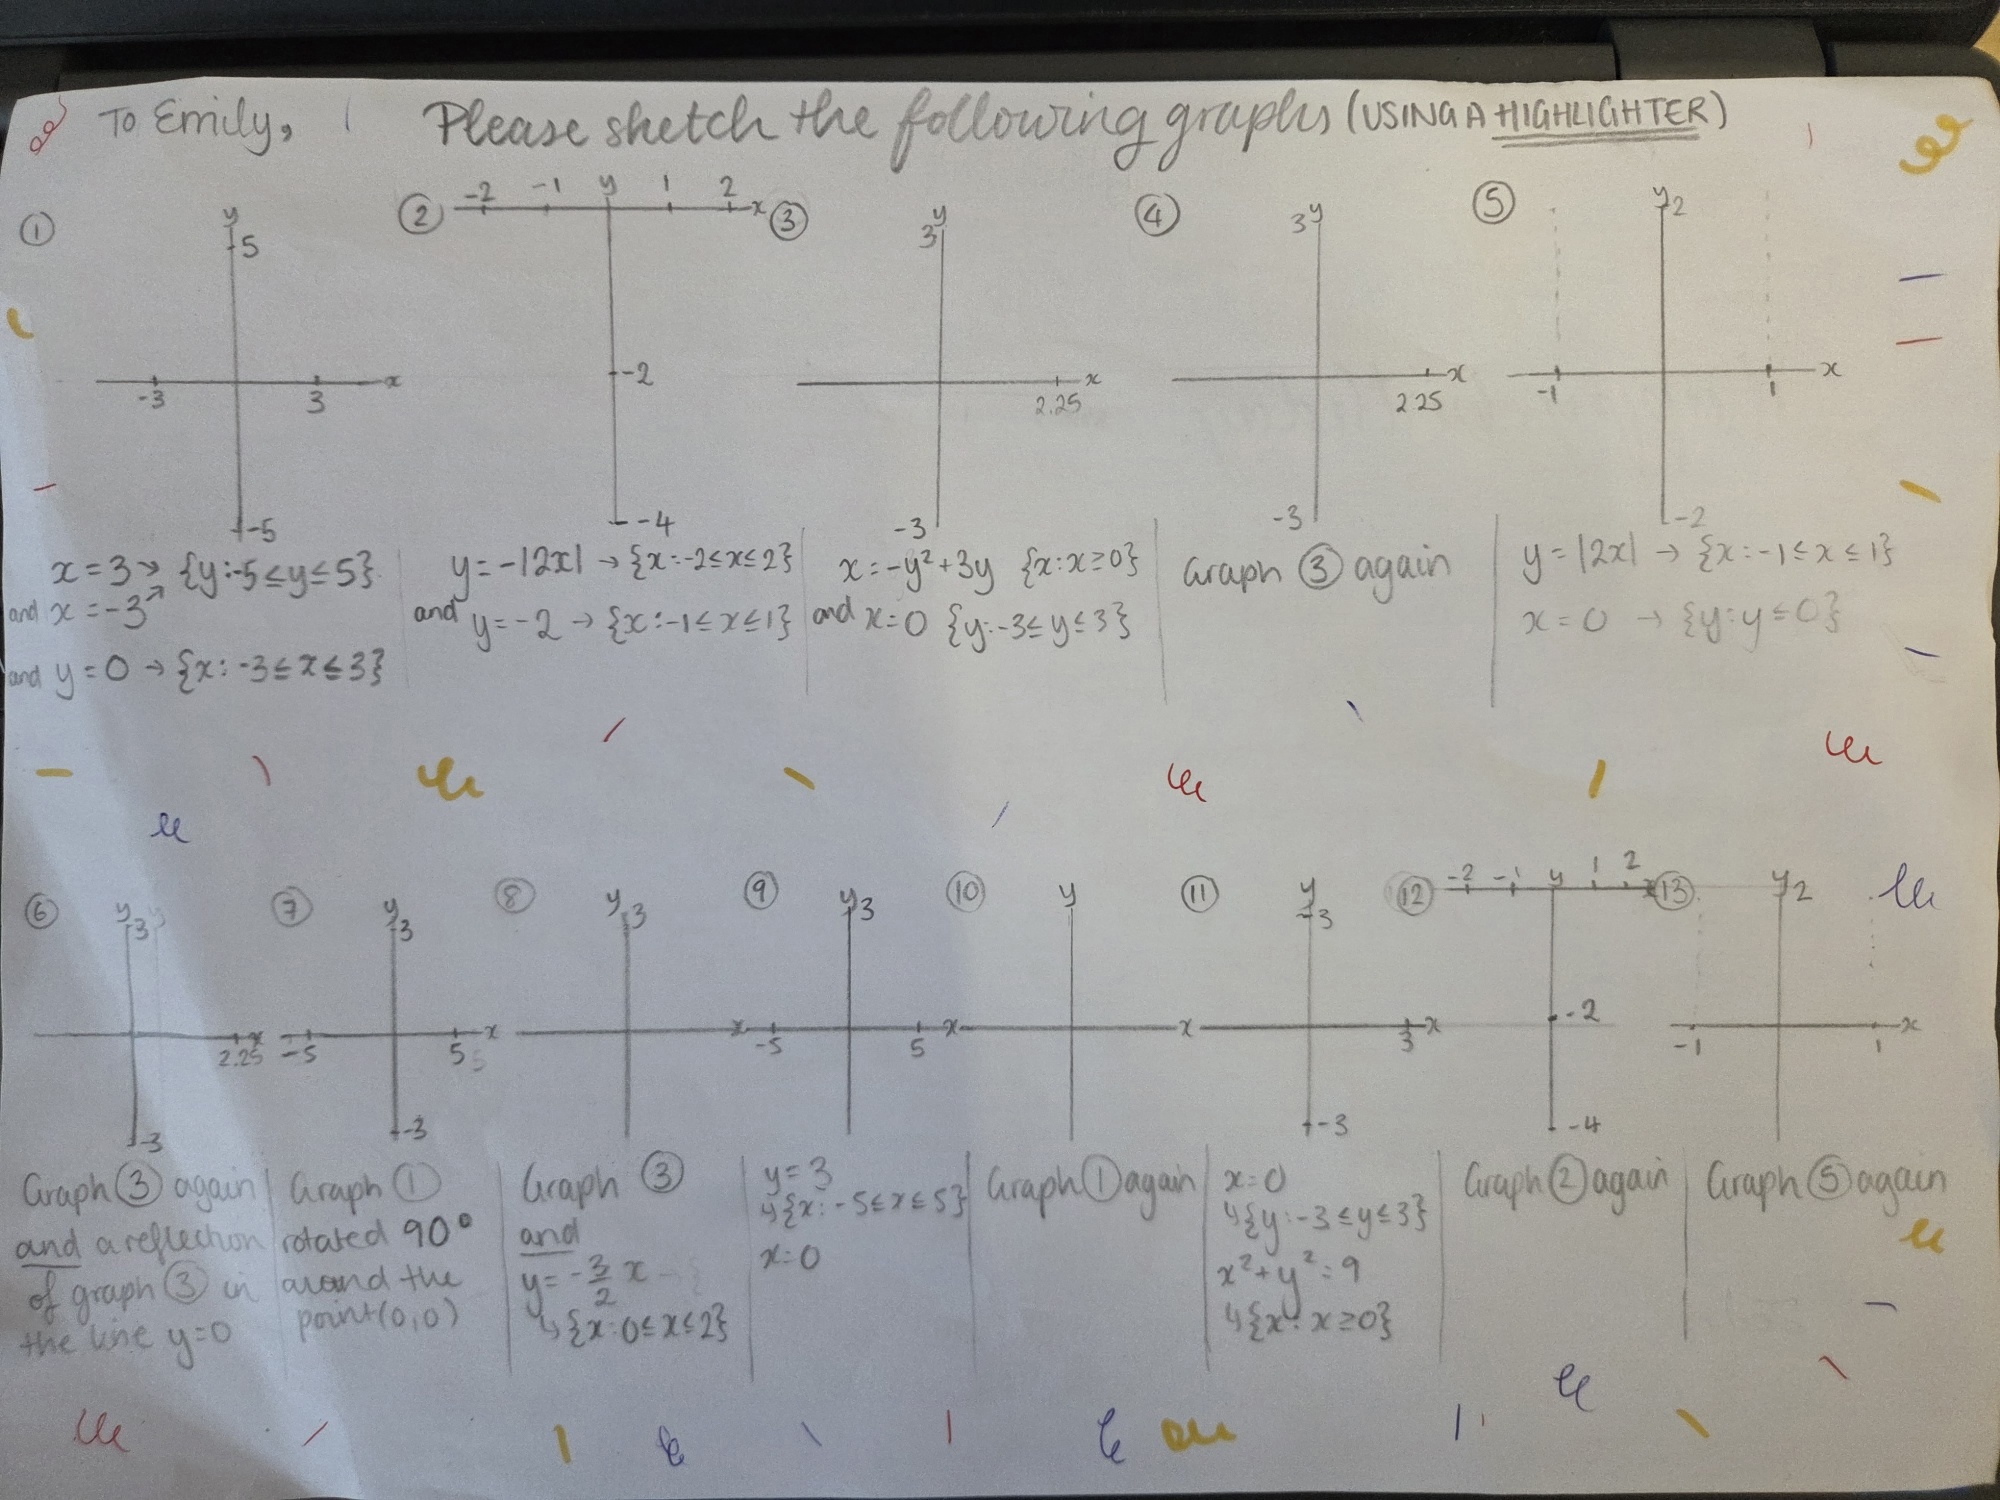 To Emily, Please sketch the following graphs (USING A HIGHLIGHTER)
①
y
5
-3 3 x
-5
x=3 → {y:-5≤y≤5}
and x=-3
and y=0 → {x:-3≤x≤3}
②
-2 -1 y 1 2 x
-2
-4
y=-|2x| → {x:-2≤x≤2}
and y=-2 → {x:-1≤x≤1}
③
y
3
x
2.25
-3
x=-y²+3y {x:x≥0}
and x=0 {y:-3≤y≤3}
④
3 y
x
2.25
-3
Graph ③ again
⑤
y 2
-1 1 x
-2
y=|2x| → {x:-1≤x≤1}
x=0 → {y:y≤0}
⑥
y 3
x
2.25
-3
Graph ③ again
and a reflection
of graph ③ in
the line y=0
⑦
y
3
-5 5 x
-3
Graph ①
rotated 90°
around the
point (0,0)
⑧
y 3
x
Graph ③
and
y=-3/2 x
↳{x:0≤x≤2}
⑨
y 3
-5 5 x
y=3
↳{x:-5≤x≤5}
x=0
⑩
y
x
Graph ① again
⑪
y
3
3 x
-3
x=0
↳{y:-3≤y≤3}
x²+y²=9
↳{x:x≥0}
⑫
-2 -1 y 1 2 x
-2
-4
Graph ② again
⑬
y 2
-1 1 x
Graph ⑤ again